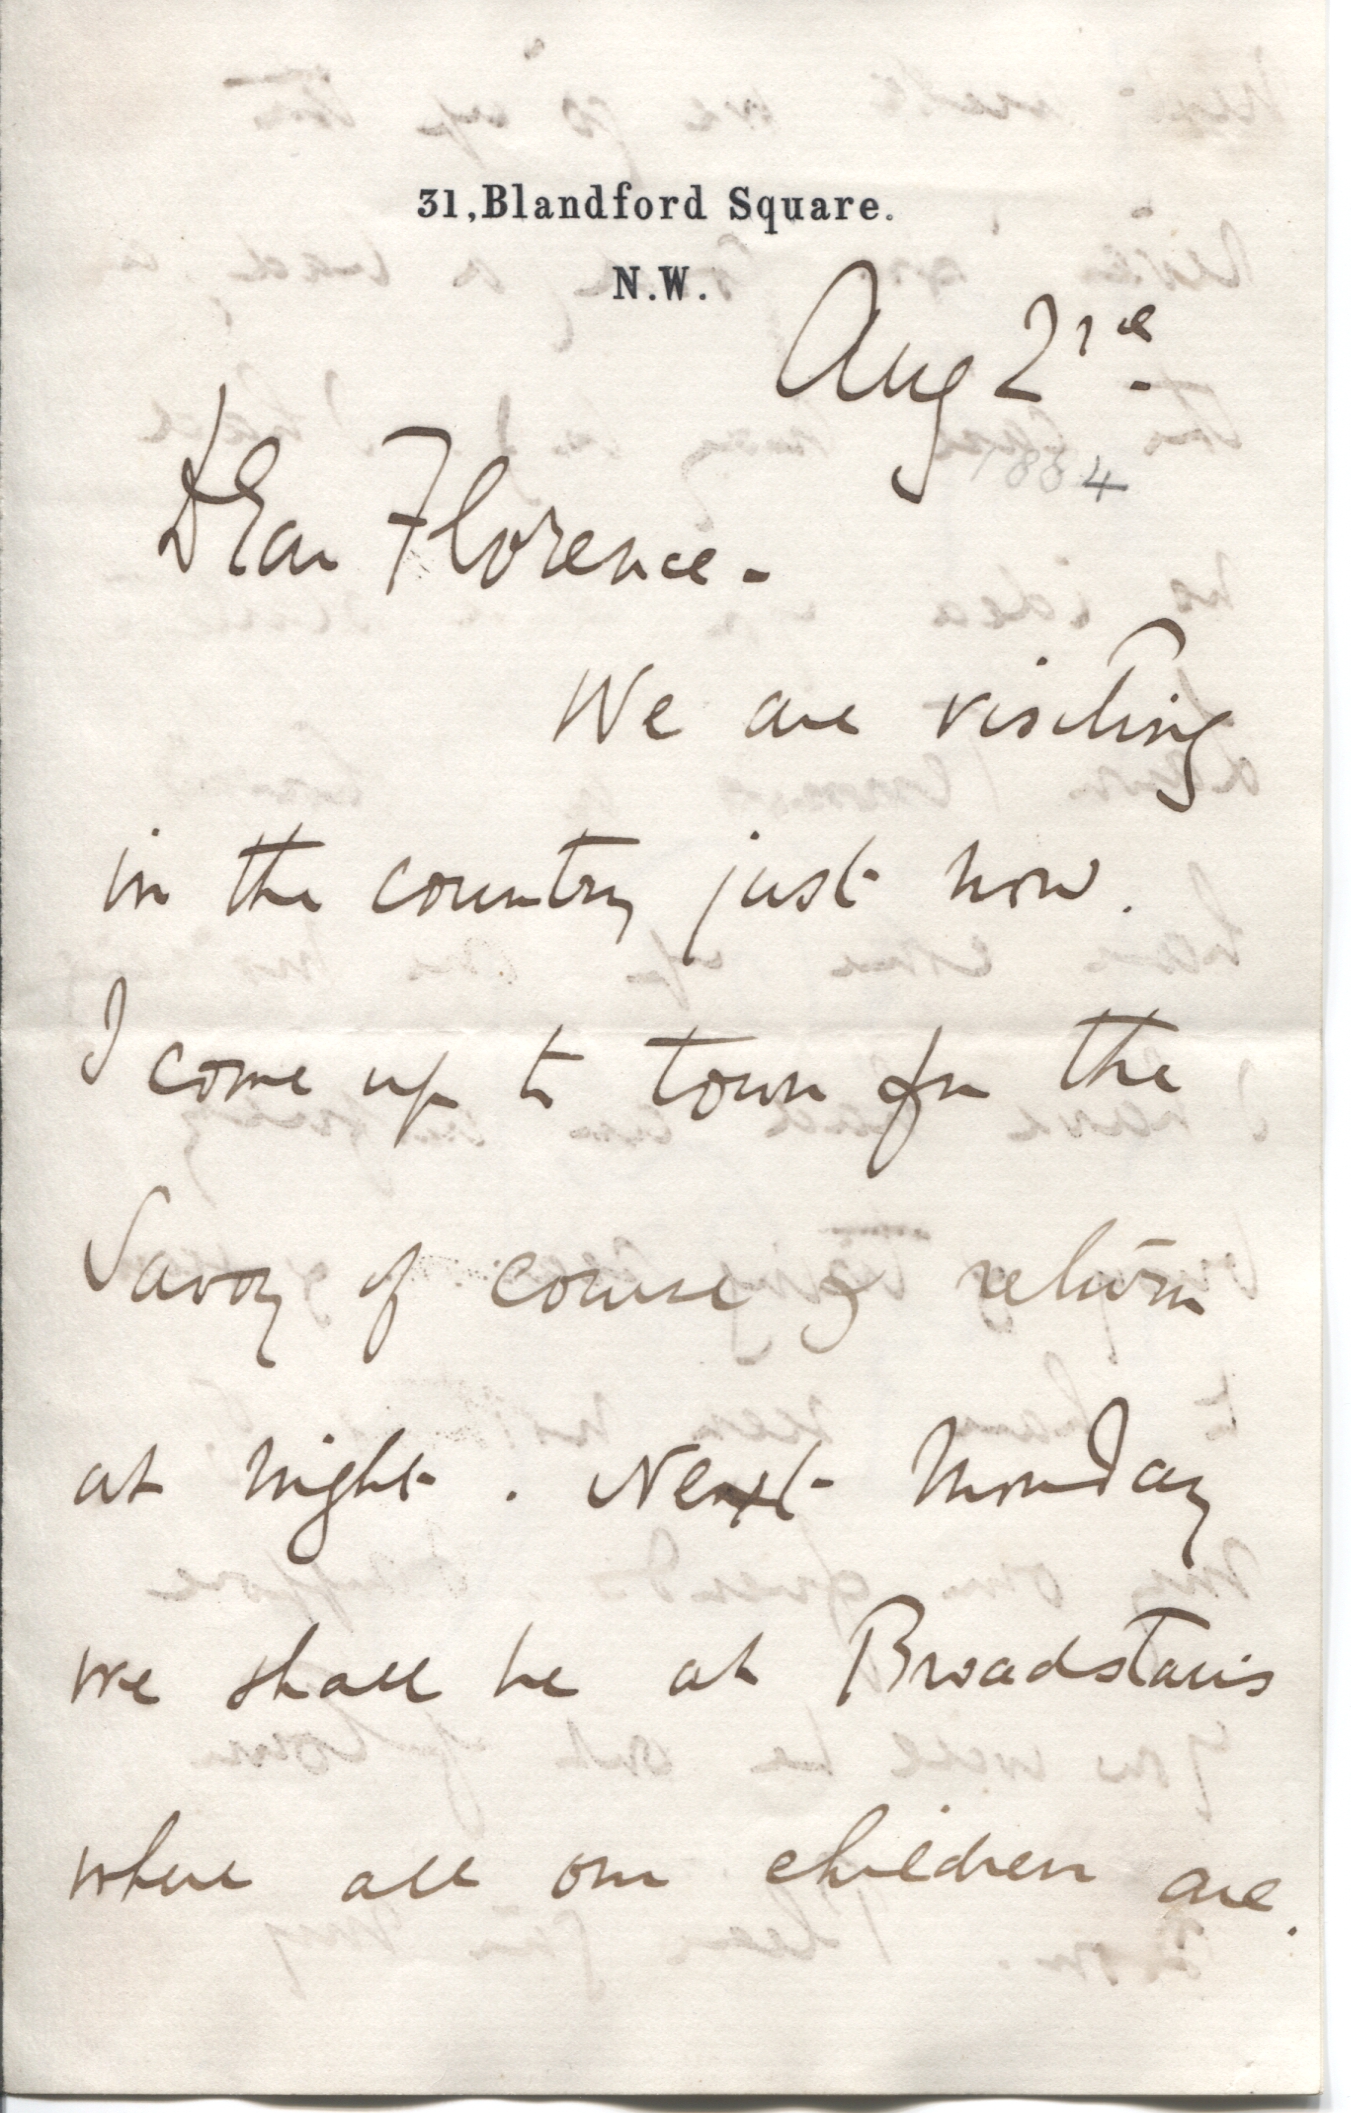 31, Blandford Square.
N.W.
Aug 2nd
1884
Dear Florence -
We are visiting
in the country just now.
I come up to town for the
Savoy of course & return
at night. Next Monday
we shall be at Broadstairs
where all our children are.